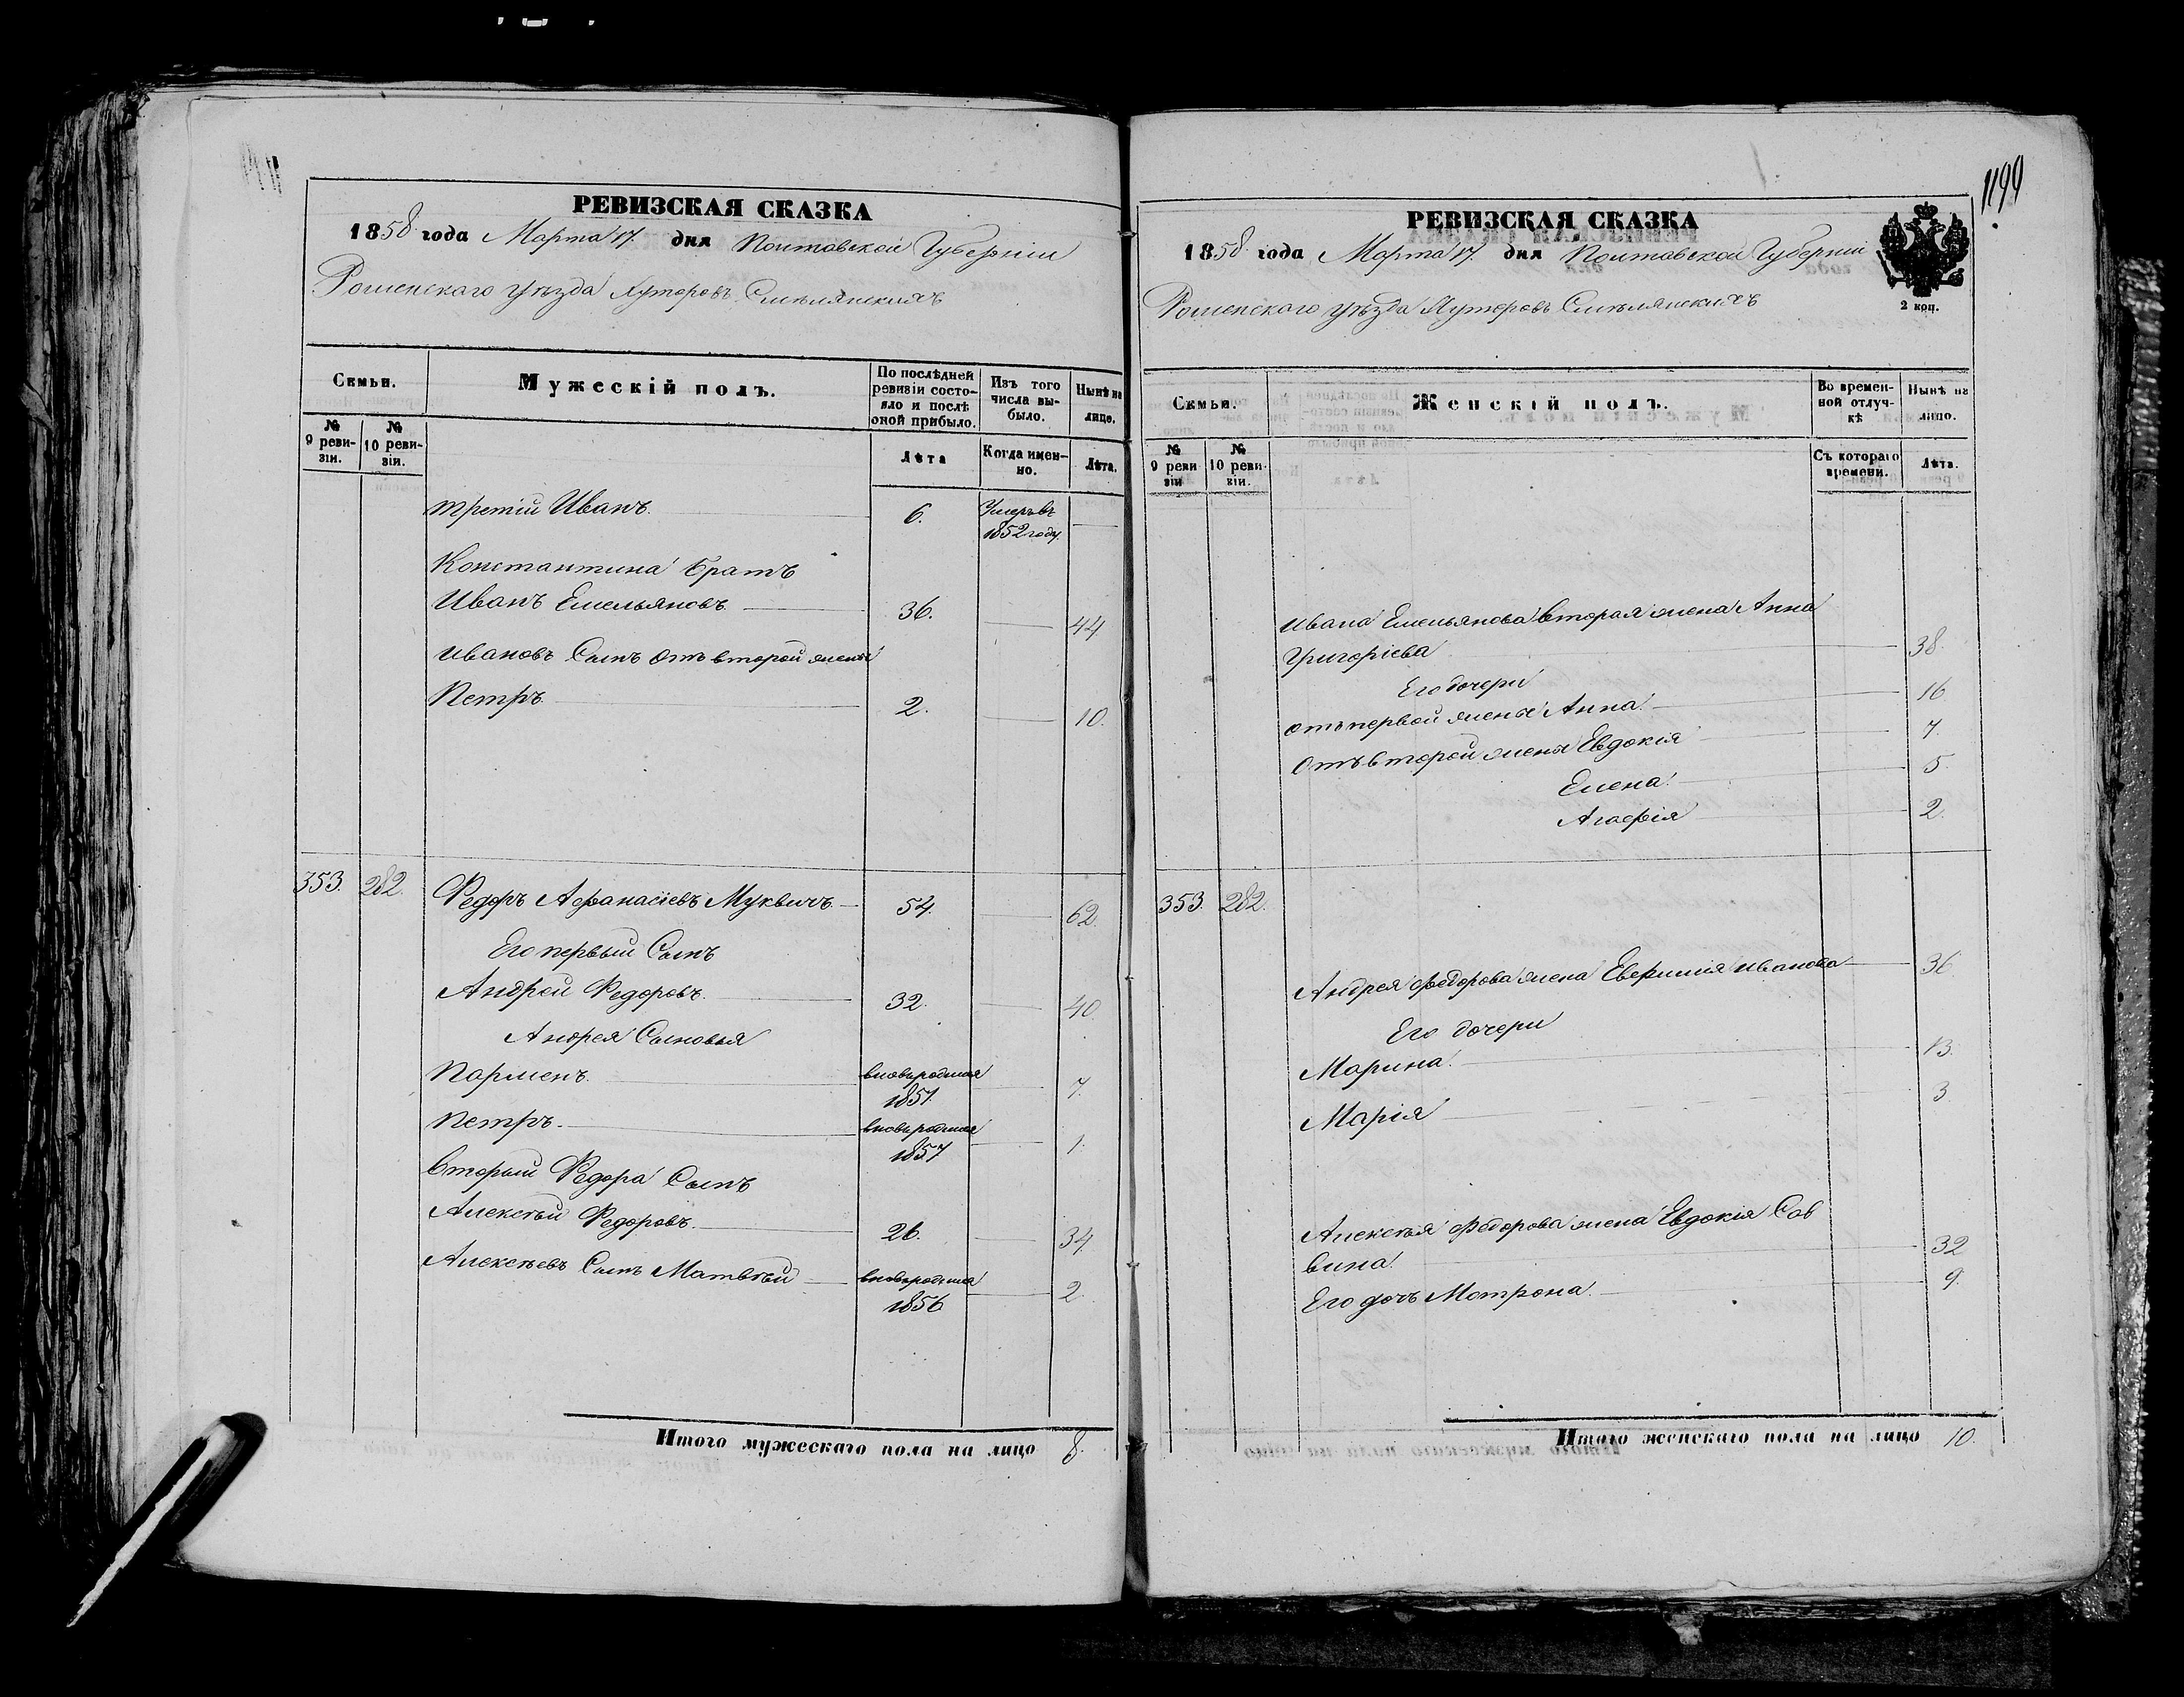 РЕВИЗСКАЯ СКАЗКА
1858 года Марта 17. дня Полтавской Губерніи
Роменскаго уѣзда Хуторовъ Смѣлянскихъ
Семьи.
Мужескій полъ.
По послѣдней ревизіи состояло и послѣ оной прибыло.
Изъ того числа выбыло.
Нынѣ на лицо.
№ 9 ревизіи.
№ 10 ревизіи.
Лѣта
Когда именно.
Лѣта.
третій Иванъ. 6. Умеръ въ 1852 году.
Константина братъ
Иванъ Емельяновъ 36. 44
Ивановъ Сынъ отъ второй жены
Петръ. 2. 10.
353. 282. Федоръ Афанасіевъ Муквичъ 54. 62.
Его первый Сынъ
Андрей Федоровъ. 32. 40.
Андрея Сыновья
Парменъ. 1851. 7.
Петръ. 1857 1.
Вторый Федора Сынъ
Алексѣй Федоровъ. 26. 34
Алексѣевъ Сынъ Матвѣй 1856 2.
Итого мужескаго пола на лицо 8.
1199
РЕВИЗСКАЯ СКАЗКА
1858 года Марта 17. дня Полтавской Губерніи
Роменскаго уѣзда Хуторовъ Смѣлянскихъ
2 коп.
Семьи.
Женскій полъ.
Во временной отлучкѣ
Нынѣ на лицо.
№ 9 ревизіи
№ 10 ревизіи.
Съ котораго времени.
Лѣта.
Ивана Емельянова вторая жена Анна
Григоріева 38.
Его дочери
отъ первой жены Анна. 16
Отъ второй жены Евдокія 7.
Елена. 5.
Агафія 2.
353. 282.
Андрея Федорова жена Евфимія Иванова 36
Его дочери
Марина. 13.
Марія 3.
Алексѣя Федорова жена Евдокія Сав
вина. 32
Его дочь Мотрона. 9.
Итого женскаго пола на лицо 10.